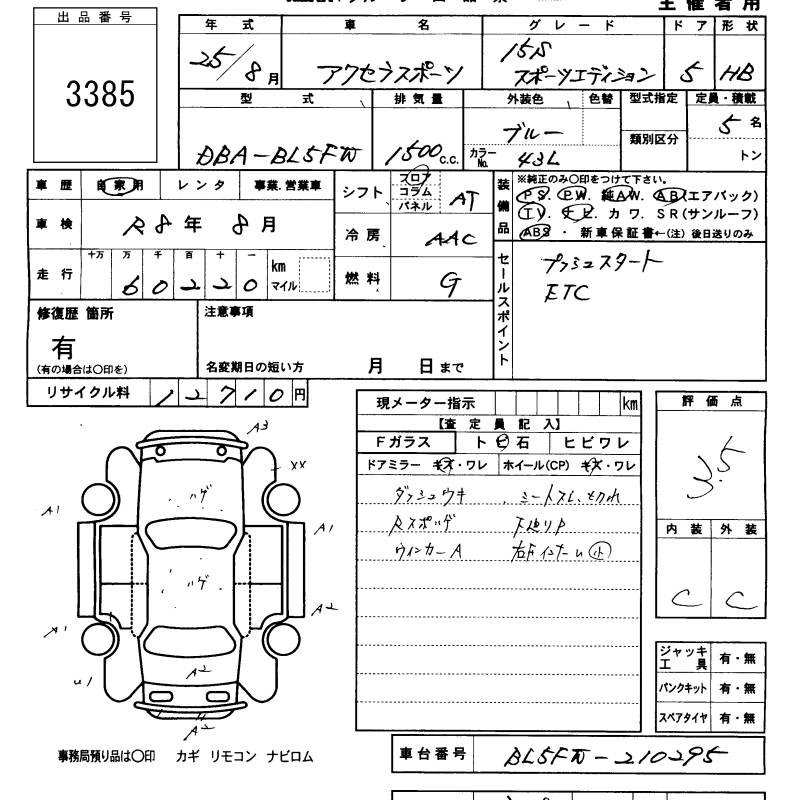 主催者用
出品番号
3385
年式 車名 グレード ドア 形状
25/8月 アクセラスポーツ 15S スポーツエディション 5 HB
型式 排気量 外装色 色替 型式指定 定員・積載
DBA-BL5FW 1500c.c. ブルー 5名
カラーNo. 43L 類別区分 トン
車歴 自家用 レンタ 事業.営業車
シフト フロア コラム パネル AT
装備品 ※純正のみ〇印をつけて下さい。
PS. PW. 純AW. AB(エアバッグ)
TV. ナビ. カワ. SR(サンルーフ)
ABS・新車保証書←(注) 後日送りのみ
車検 R8年 8月
冷房 AAC
走行 十万 万 千 百 十 一
60220 km マイル
燃料 G
セールスポイント プッシュスタート
ETC
修復歴 箇所
有
(有の場合は〇印を)
注意事項
名変期日の短い方 月 日まで
リサイクル料 12710円
現メーター指示 km
【査定員記入】
Fガラス トビ石 ヒビワレ
ドアミラー キズ・ワレ ホイール(CP) キズ・ワレ
ダッシュウキ シートスレ、
Rスポハゲ 下廻りP
ウィンカーA 小
評価点
3.5
内装 外装
C C
A3
XX
ハゲ
A1
A1
ハゲ
A2
A1
A2
U1
A2
ジャッキ工具 有・無
パンクキット 有・無
スペアタイヤ 有・無
事務局預り品は〇印 カギ リモコン ナビロム
車台番号 BL5FW-210295